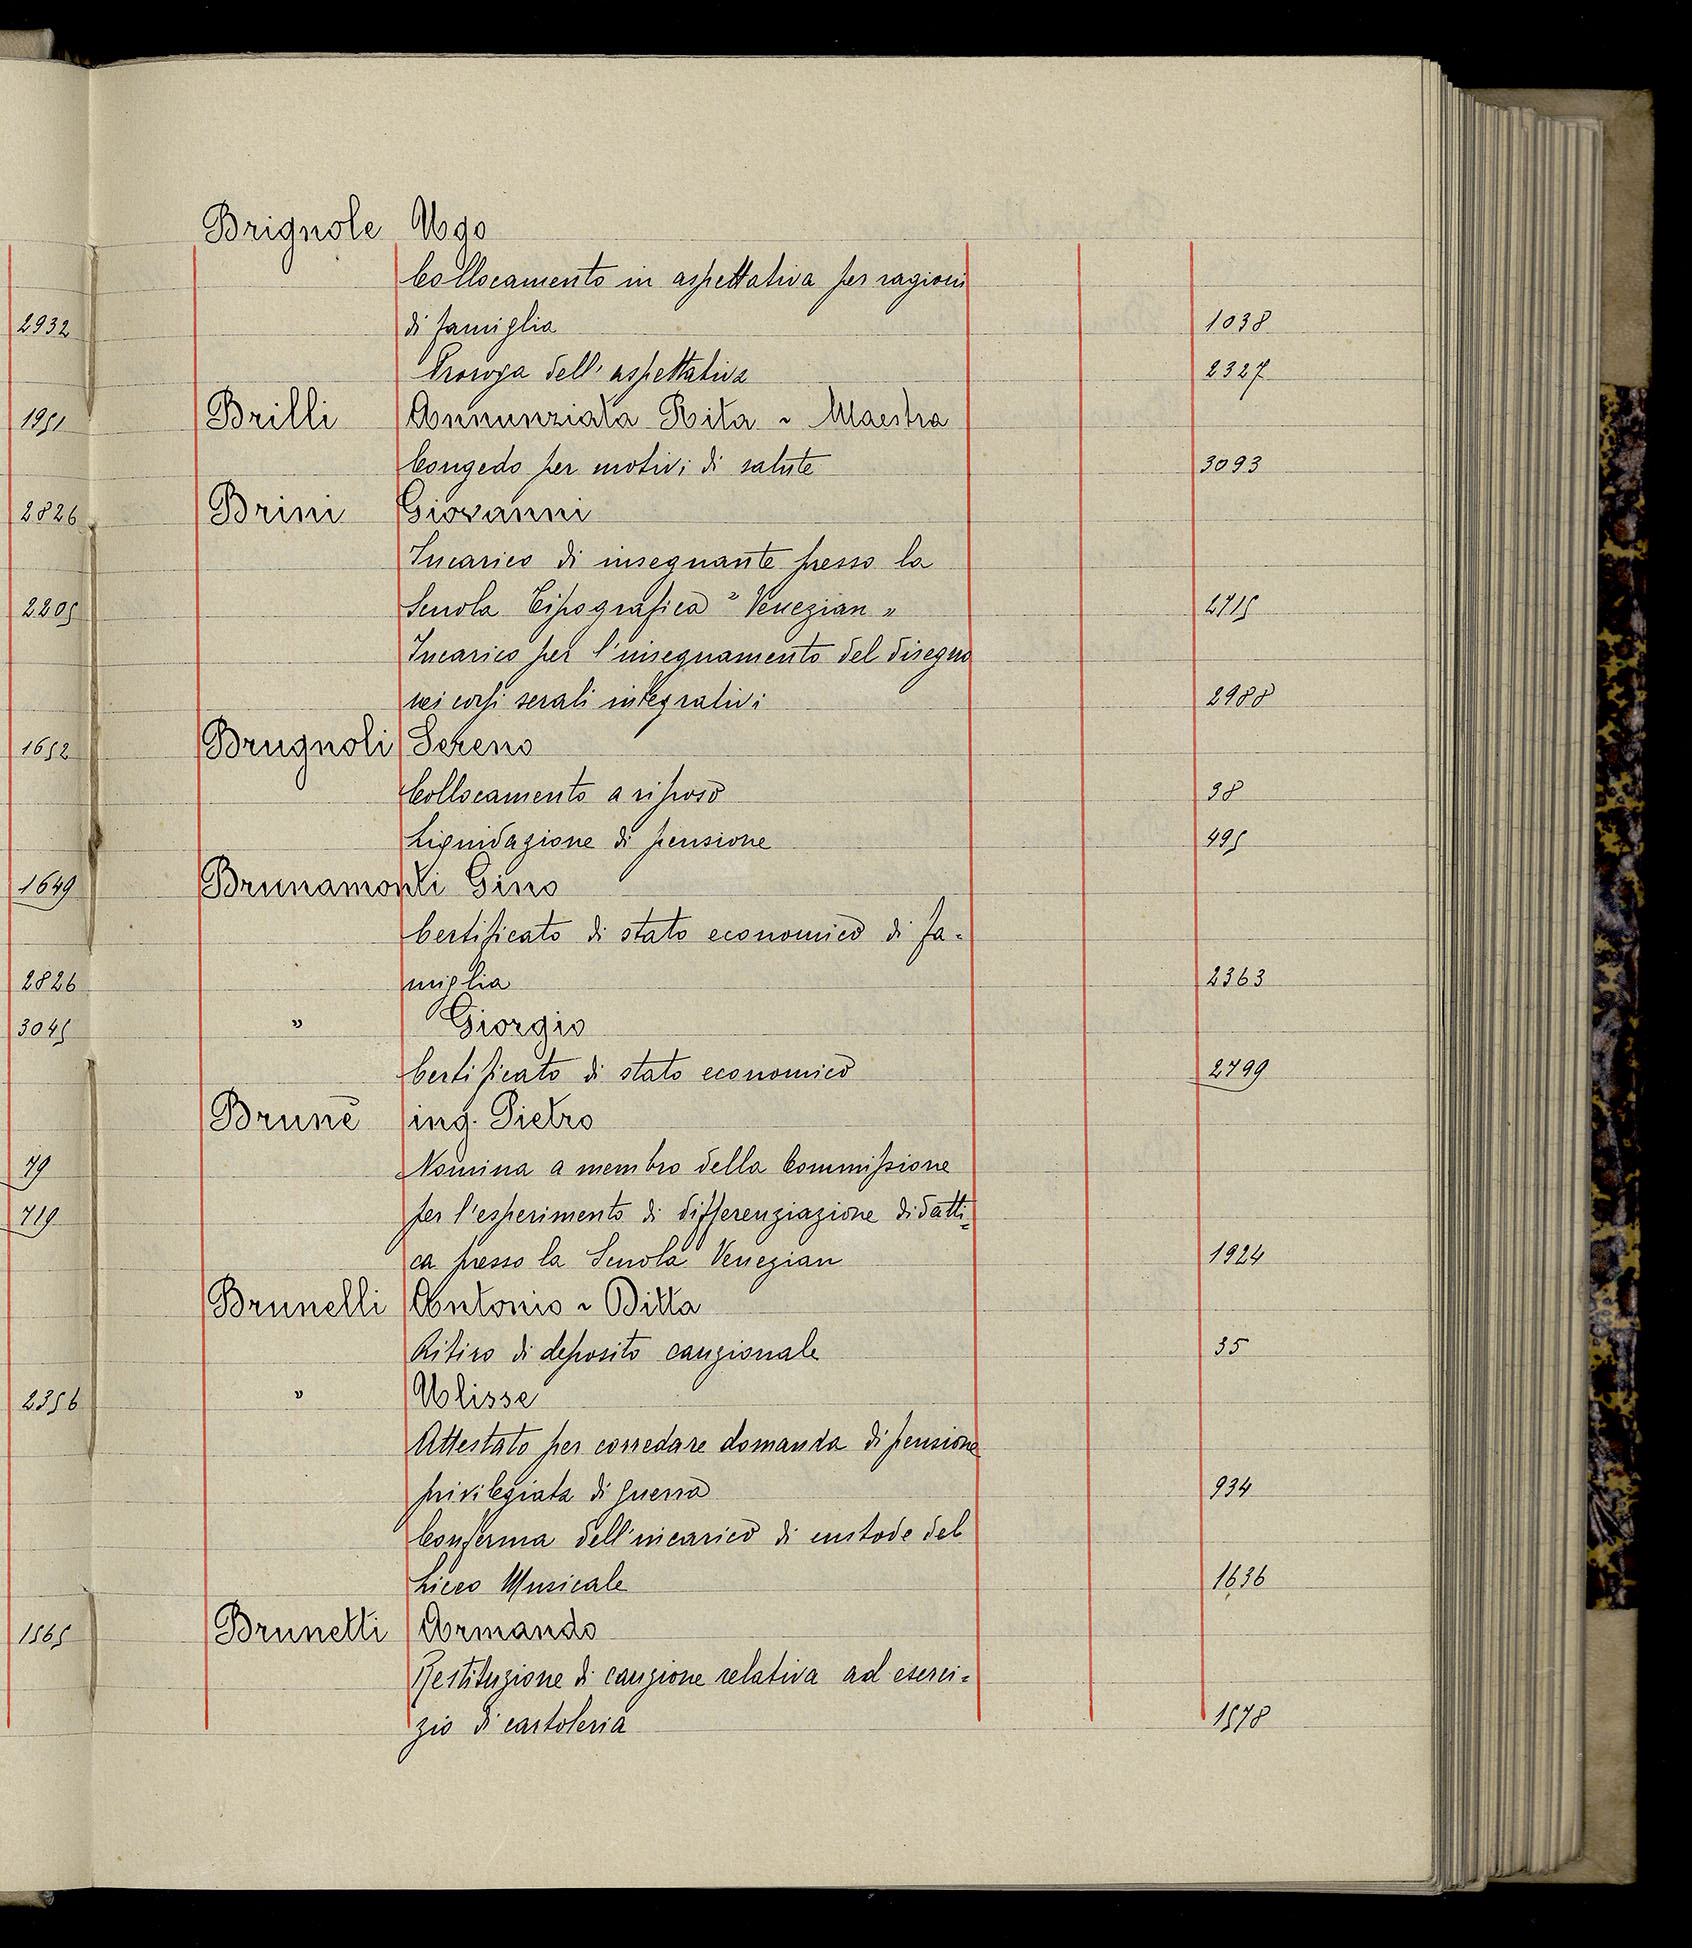 Brignole Ugo
Collocamento in aspettativa per ragioni
2932 di famiglia 1038
Proroga dell'aspettativa 2327
1951 Brilli Annunziata Rita ~ Maestra
Congedo per motivi di salute 3093
2826 Brini Giovanni
Incarico di insegnante presso la
2205 Scuola Tipografica " Venezian " 2715
Incarico per l'insegnamento del disegno
nei corsi serali integrativi 2988
1652 Brugnoli Sereno
Collocamento a riposo 38
Liquidazione di pensione 495
1649 Brunamonti Gino
Certificato di stato economico di fa-
2826 miglia 2363
3045 " Giorgio
Certificato di stato economico 2799
Brunè ing. Pietro
79 Nomina a membro della Commissione
719 per l'esperimento di differenziazione didatti=
ca presso la Scuola Venezian 1924
Brunelli Antonio ~ Ditta
Ritiro di deposito cauzionale 35
2356 " Ulisse
Attestato per corredare domanda di pensione
privilegiata di guerra 934
Conferma dell'incarico di custode del
Liceo Musicale 1636
1565 Brunetti Armando
Restituzione di cauzione relativa ad eserci=
zio di cartoleria 1578